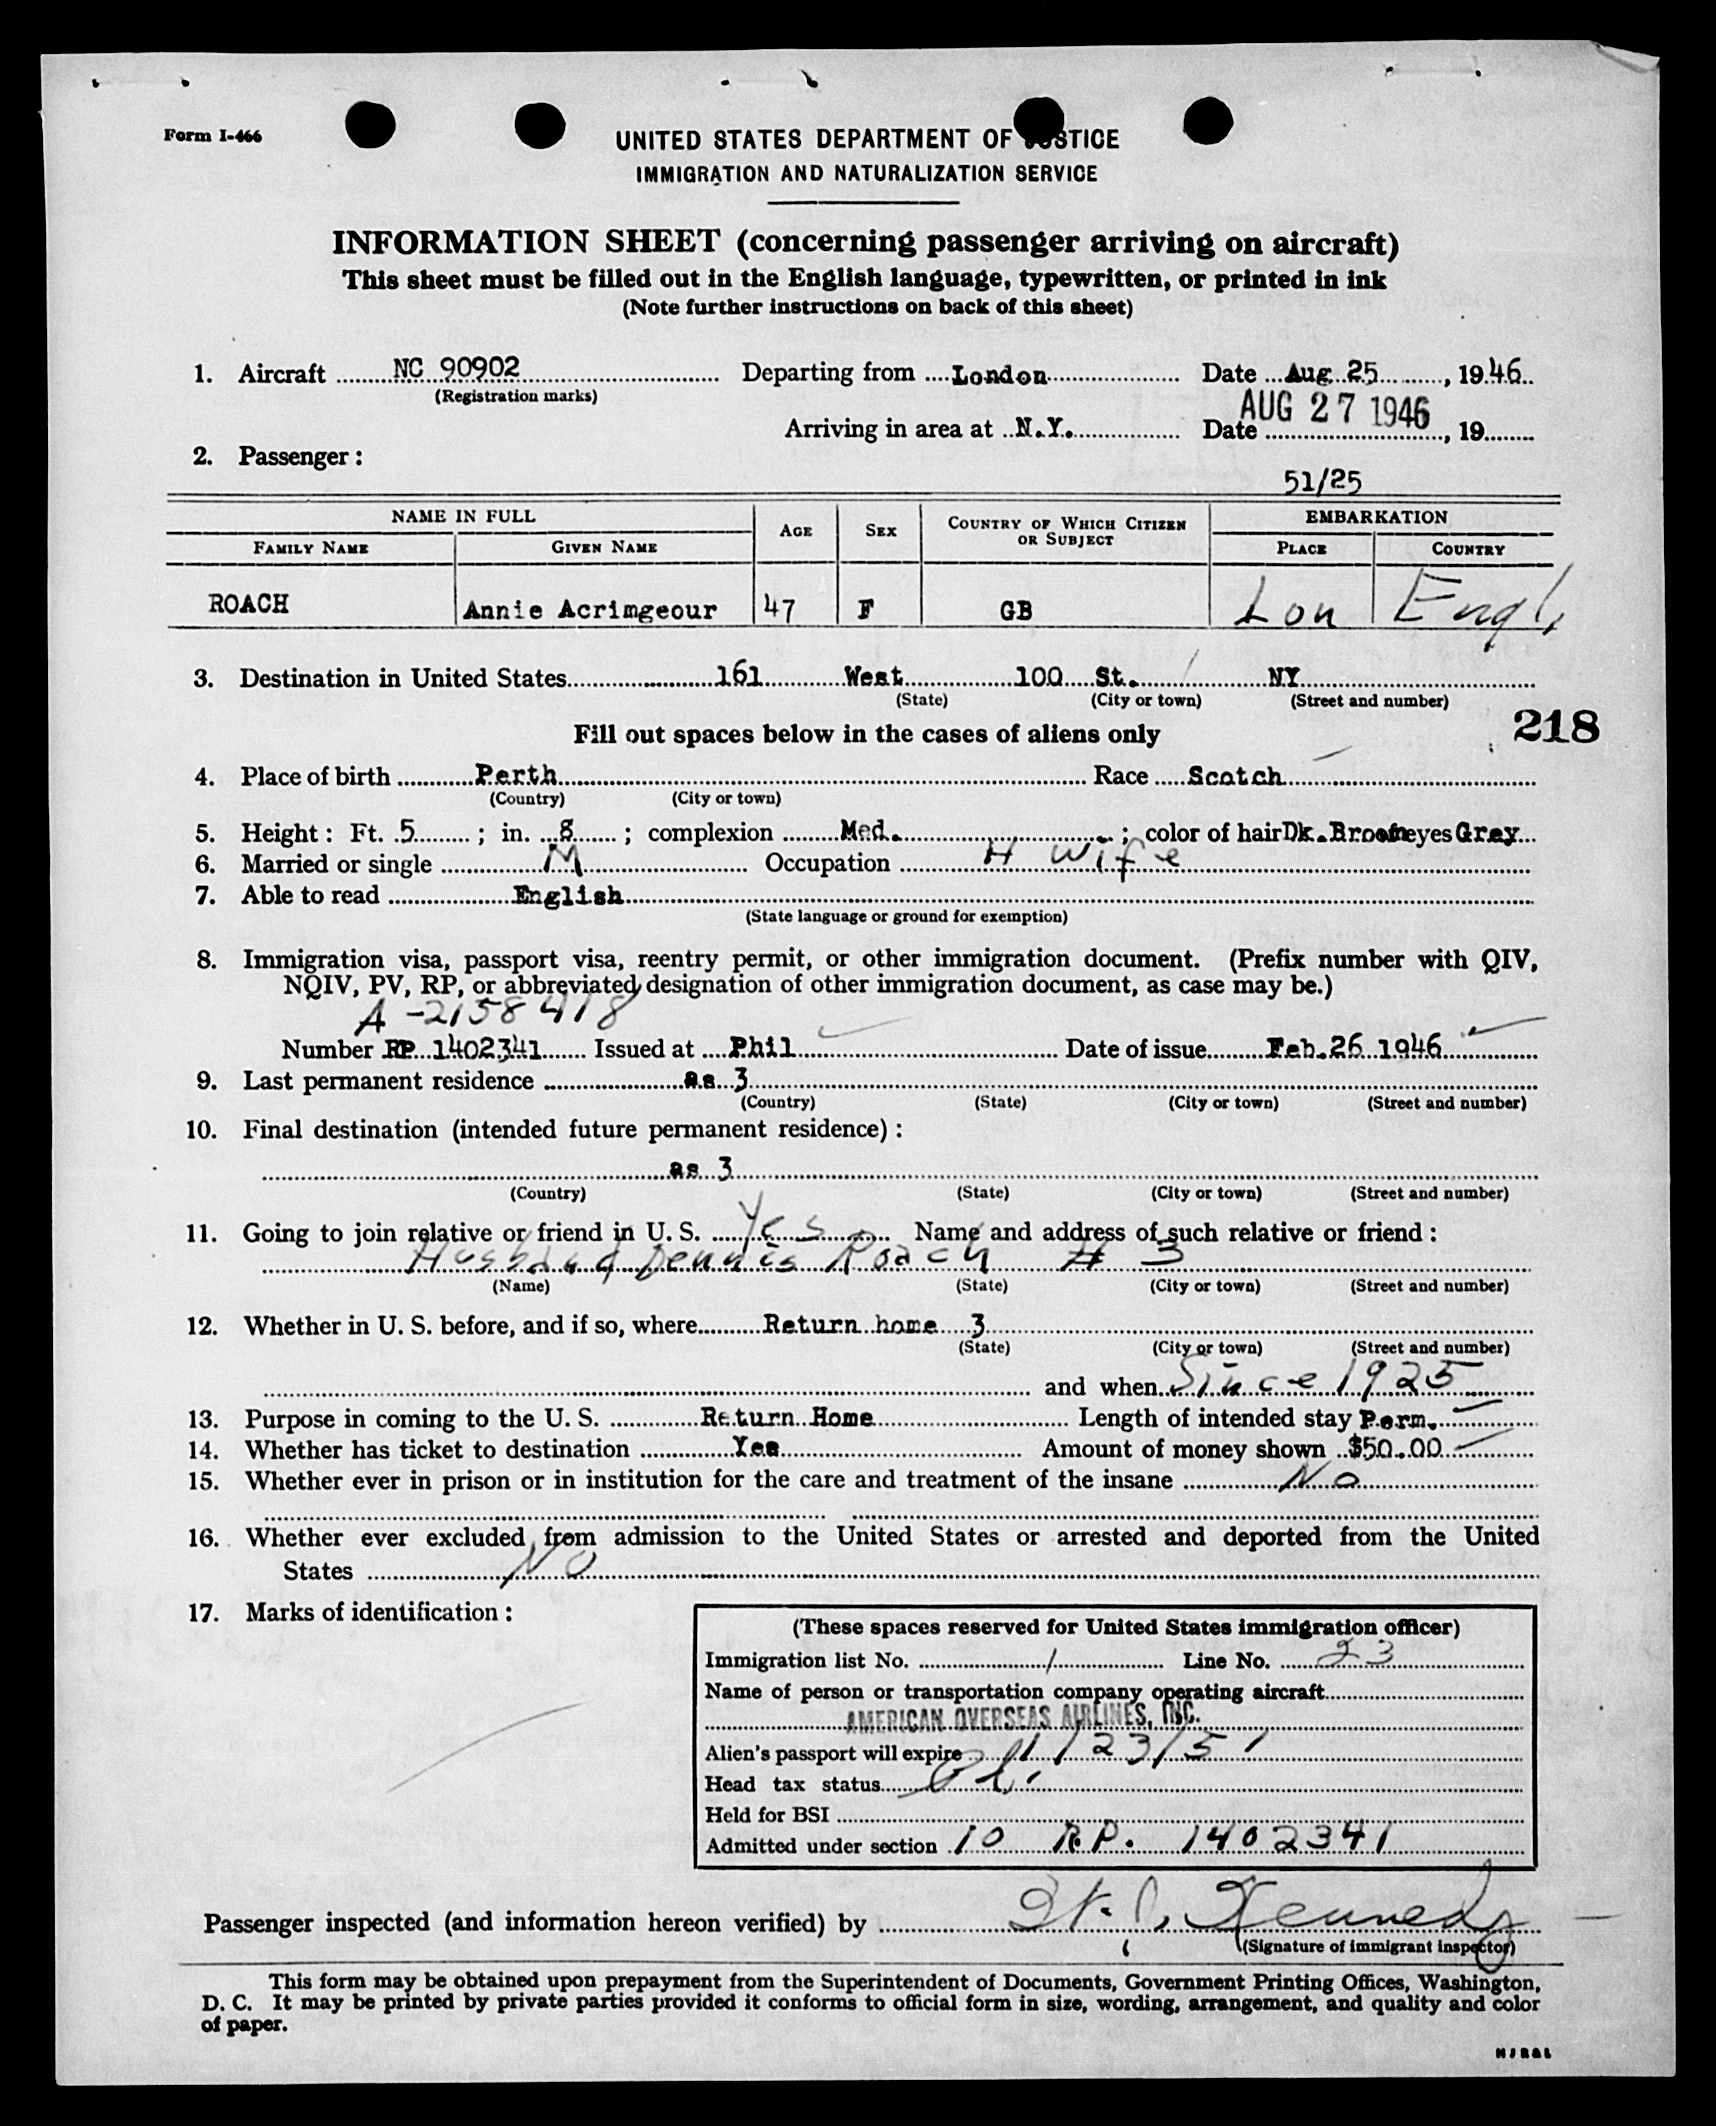 Form I-466
UNITED STATES DEPARTMENT OF JUSTICE
IMMIGRATION AND NATURALIZATION SERVICE
INFORMATION SHEET (concerning passenger arriving on aircraft)
This sheet must be filled out in the English language, typewritten, or printed in ink
(Note further instructions on back of this sheet)
1. Aircraft NC 90902 Departing from London Date Aug 25, 1946
(Registration marks)
Arriving in area at N.Y. Date AUG 27 1946, 19
2. Passenger:
51/25
NAME IN FULL AGE SEX COUNTRY OF WHICH CITIZEN OR SUBJECT EMBARKATION
FAMILY NAME GIVEN NAME PLACE COUNTRY
ROACH Annie Acrimgeour 47 F GB Lon Engl,
3. Destination in United States 161 West 100 St. NY
(State) (City or town) (Street and number)
218
Fill out spaces below in the cases of aliens only
4. Place of birth Perth Race Scotch
(Country) (City or town)
5. Height: Ft. 5; in. 8; complexion Med.; color of hair Dk. Brown eyes Grey
6. Married or single M Occupation H Wife
7. Able to read English
(State language or ground for exemption)
8. Immigration visa, passport visa, reentry permit, or other immigration document. (Prefix number with QIV,
NQIV, PV, RP, or abbreviated designation of other immigration document, as case may be.)
A-2158418
Number RP 1402341 Issued at Phil Date of issue Feb. 26 1946
9. Last permanent residence as 3
(Country) (State) (City or town) (Street and number)
10. Final destination (intended future permanent residence):
as 3
(Country) (State) (City or town) (Street and number)
11. Going to join relative or friend in U. S. Yes Name and address of such relative or friend:
Husband Dennis Roach # 3
(Name) (State) (City or town) (Street and number)
12. Whether in U. S. before, and if so, where Return home 3
(State) (City or town) (Street and number)
and when Since 1925
13. Purpose in coming to the U. S. Return Home Length of intended stay Perm.
14. Whether has ticket to destination Yes Amount of money shown $50.00
15. Whether ever in prison or in institution for the care and treatment of the insane No
16. Whether ever excluded from admission to the United States or arrested and deported from the United
States NO
17. Marks of identification:
(These spaces reserved for United States immigration officer)
Immigration list No. 1 Line No. 23
Name of person or transportation company operating aircraft
AMERICAN OVERSEAS AIRLINES, INC.
Alien's passport will expire 1/23/51
Head tax status
Held for BSI
Admitted under section 10 R.P. 1402341
Passenger inspected (and information hereon verified) by Kennedy
(Signature of immigrant inspector)
This form may be obtained upon prepayment from the Superintendent of Documents, Government Printing Offices, Washington,
D. C. It may be printed by private parties provided it conforms to official form in size, wording, arrangement, and quality and color
of paper.